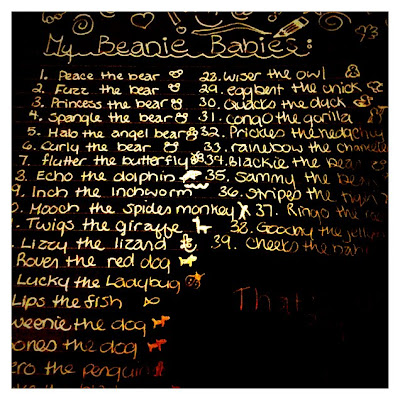 93
My Beanie Babies:
1. Peace the bear
2. Fuzz the bear
3. Princess the bear
4. Spangle the bear
5. Halo the angel bear
6. Curly the bear
7. flutter the butterfly
8. Echo the dolphin
9. Inch the inchworm
Mooch the spider monkey
Twigs the giraffe
Lizzy the lizard
Rover the red dog
Lucky the Ladybug
Lips the fish
weenie the dog
ones the dog
ero the penguin
28. wiser the owl
29. eggbert the chick
30. Quacks the duck
31. Congo the gorilla
32. Prickles the hedgehog
33. rainbow the chamele
34. Blackie the bear
35. Sammy the bear
36. Stripes the tiger
37. Ringo the
38. Goochy the jelly
39. Cheeks the